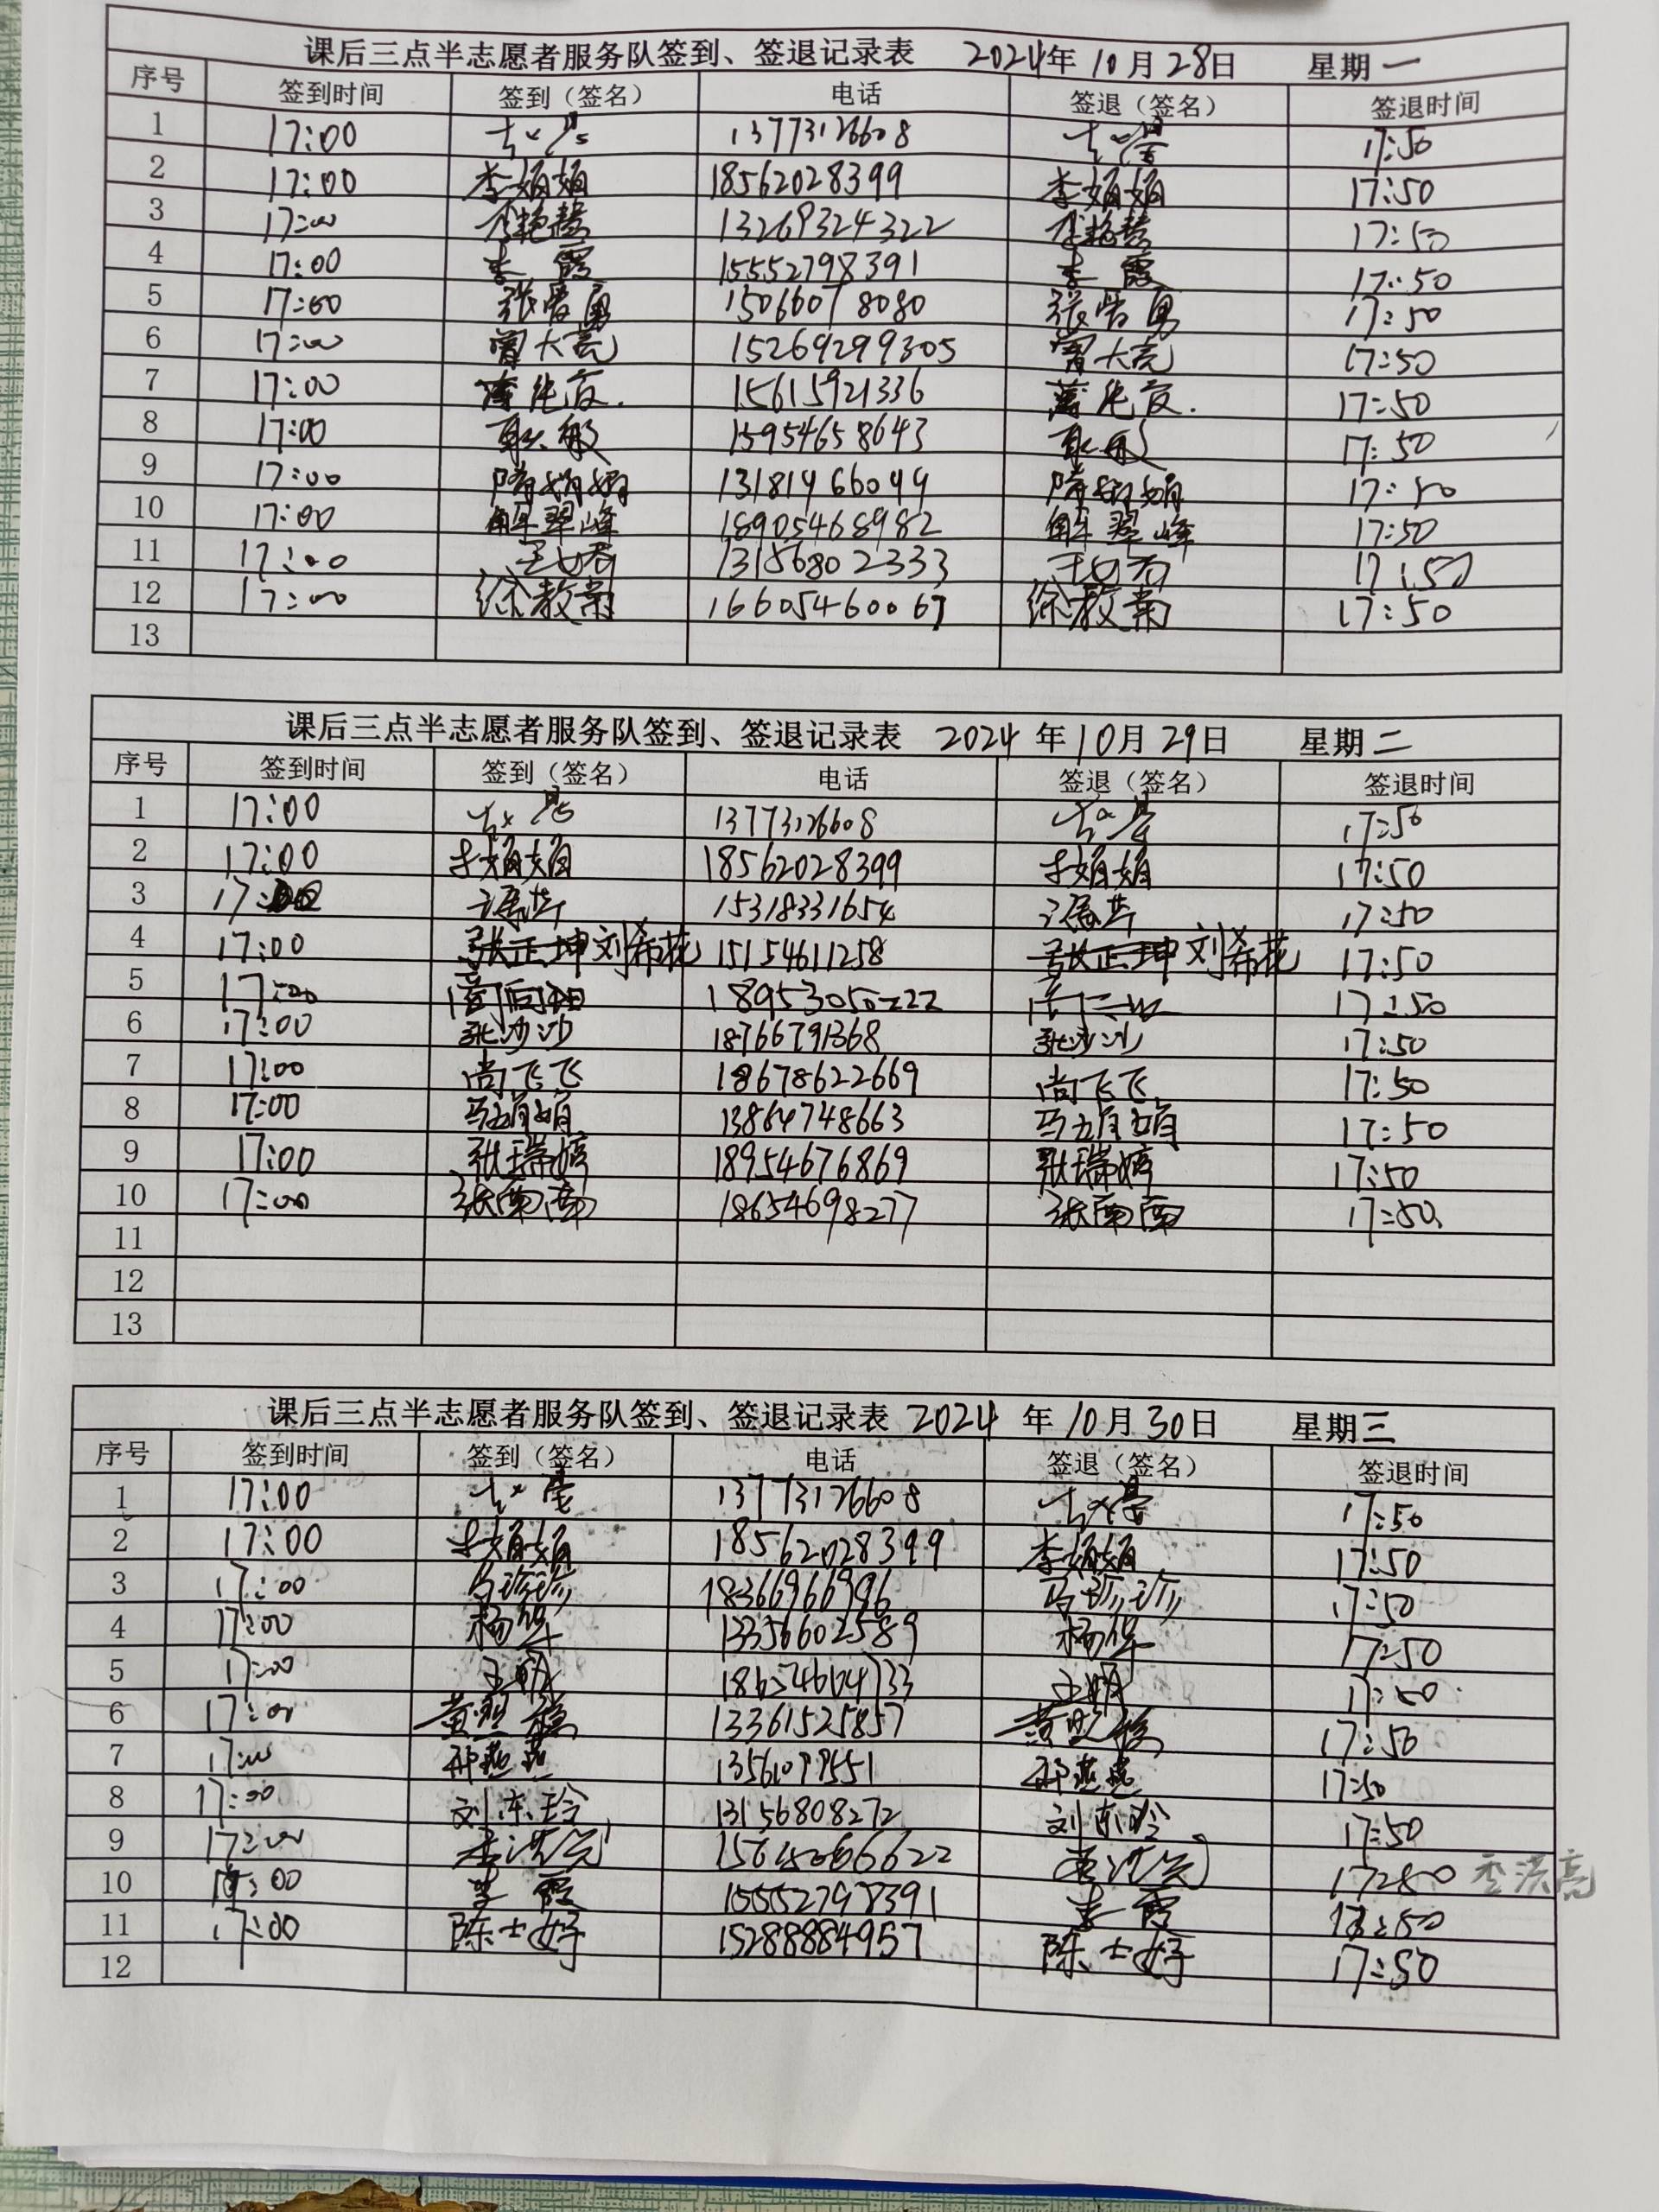 课后三点半志愿者服务队签到、签退记录表 2024年10月28日 星期一
序号 签到时间 签到（签名） 电话 签退（签名） 签退时间
1 17:00 13773126608 17:50
2 17:00 李娟娟 18562028399 李娟娟 17:50
3 17:00 13269324322 17:50
4 17:00 李霞 15552798391 李霞 17:50
5 17:00 15066078080 17:50
6 17:00 曾大亮 15269299305 曾大亮 17:50
7 17:00 15615921336 17:50
8 17:00 耿敏 15954658643 耿敏 17:50
9 17:00 隋娟娟 13181966049 隋娟娟 17:50
10 17:00 解翠峰 18905468982 解翠峰 17:50
11 17:00 13156802333 17:50
12 17:00 徐教荣 16605460067 徐教荣 17:50
13
课后三点半志愿者服务队签到、签退记录表 2024年10月29日 星期二
序号 签到时间 签到（签名） 电话 签退（签名） 签退时间
1 17:00 13773126608 17:50
2 17:00 李娟娟 18562028399 李娟娟 17:50
3 17:00 15318331654 17:50
4 17:00 张正坤 刘希花 15154611258 张正坤 刘希花 17:50
5 17:00 18953050222 17:50
6 17:00 张沙沙 18766791368 张沙沙 17:50
7 17:00 尚飞飞 18678622669 尚飞飞 17:50
8 17:00 马娟娟 13864748663 马娟娟 17:50
9 17:00 张瑞婷 18954676869 张瑞婷 17:50
10 17:00 张南南 18654698277 张南南 17:50
11
12
13
课后三点半志愿者服务队签到、签退记录表 2024年10月30日 星期三
序号 签到时间 签到（签名） 电话 签退（签名） 签退时间
1 17:00 13773126608 17:50
2 17:00 李娟娟 18562028399 李娟娟 17:50
3 17:00 马珍珍 18366966996 马珍珍 17:50
4 17:00 杨华 13356602589 杨华 17:50
5 17:00 王明 18654604733 王明 17:50
6 17:00 13361525857 17:50
7 17:00 邢燕燕 13561099551 邢燕燕 17:50
8 17:00 刘东玲 13156808272 刘东玲 17:50
9 17:00 李洪亮 17:50 李洪亮
10 17:00 李霞 15552798391 李霞 17:50
11 17:00 陈士好 15288884957 陈士好 17:50
12